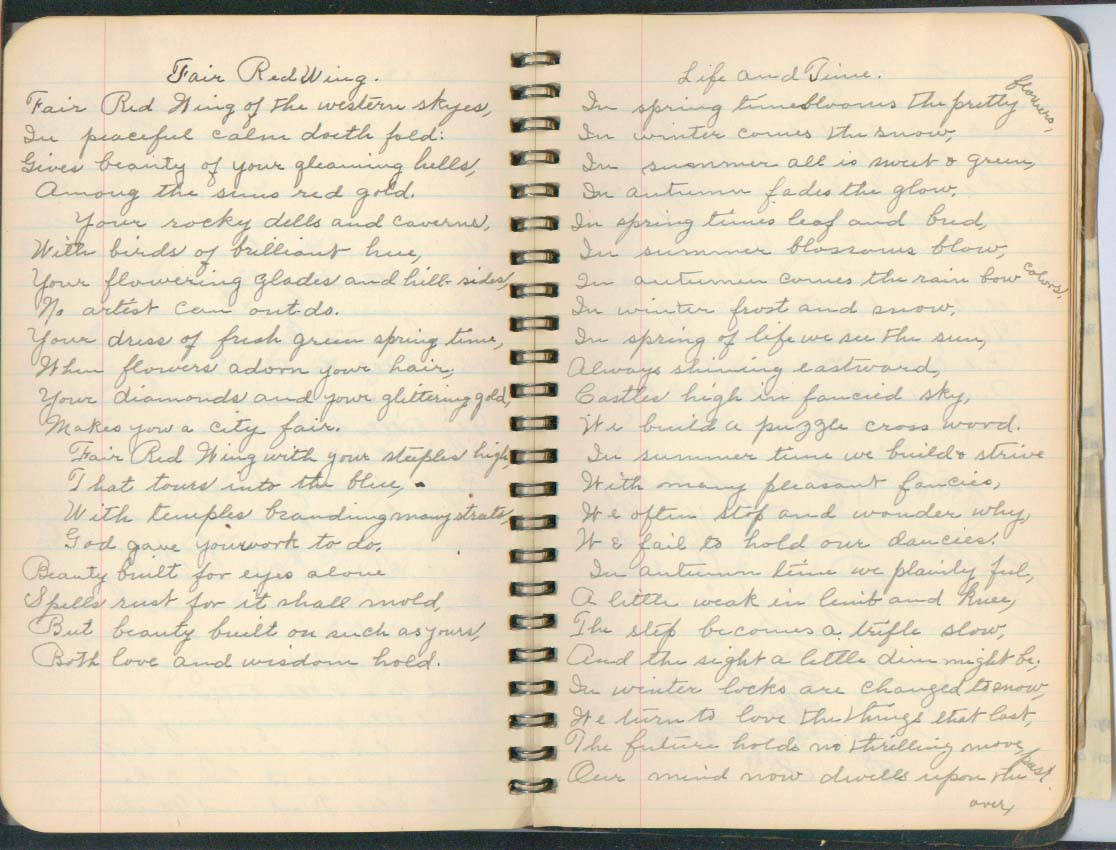 Fair Red Wing.
Fair Red Wing of the western skyes,
In peaceful calm doeth fold:
Gives beauty of your gleaming hills,
Among the suns red gold.
Your rocky dells and caverns,
With birds of brilliant hue,
Your flowering glades and hill-sides,
No artist can out-do.
Your dress of fresh green spring time,
When flowers adorn your hair,
Your diamonds and your glittering gold,
Makes you a city fair.
Fair Red Wing with your steeples high,
That tours into the blue,
With temples branding many
God gave your work to do.
Beauty built for eyes alone
Spells rust for it shall mold,
But beauty built on such as yours,
Both love and wisdom hold.
Life and Time.
In spring time blooms the pretty flowers,
In winter comes the snow,
In summer all is sweet & green,
In autumn fades the glow.
In spring times leaf and bud,
In summer blossoms blow,
In autumn comes the rain bow colors,
In winter frost and snow.
In spring of life we see the sun,
Always shining eastward,
Castles high in fancied sky,
We build a puzzle cross word.
In summer time we build & strive
With many pleasant fancies,
We often stop and wonder why,
We fail to hold our dancies.
In autumn time we plainly feel,
A little weak in limb and knee,
The step becomes a trifle slow,
And the sight a little dim might be,
In winter locks are changed to snow,
We turn to love the things that last,
The future holds no thrilling move,
Our mind now dwells upon the past.
over,